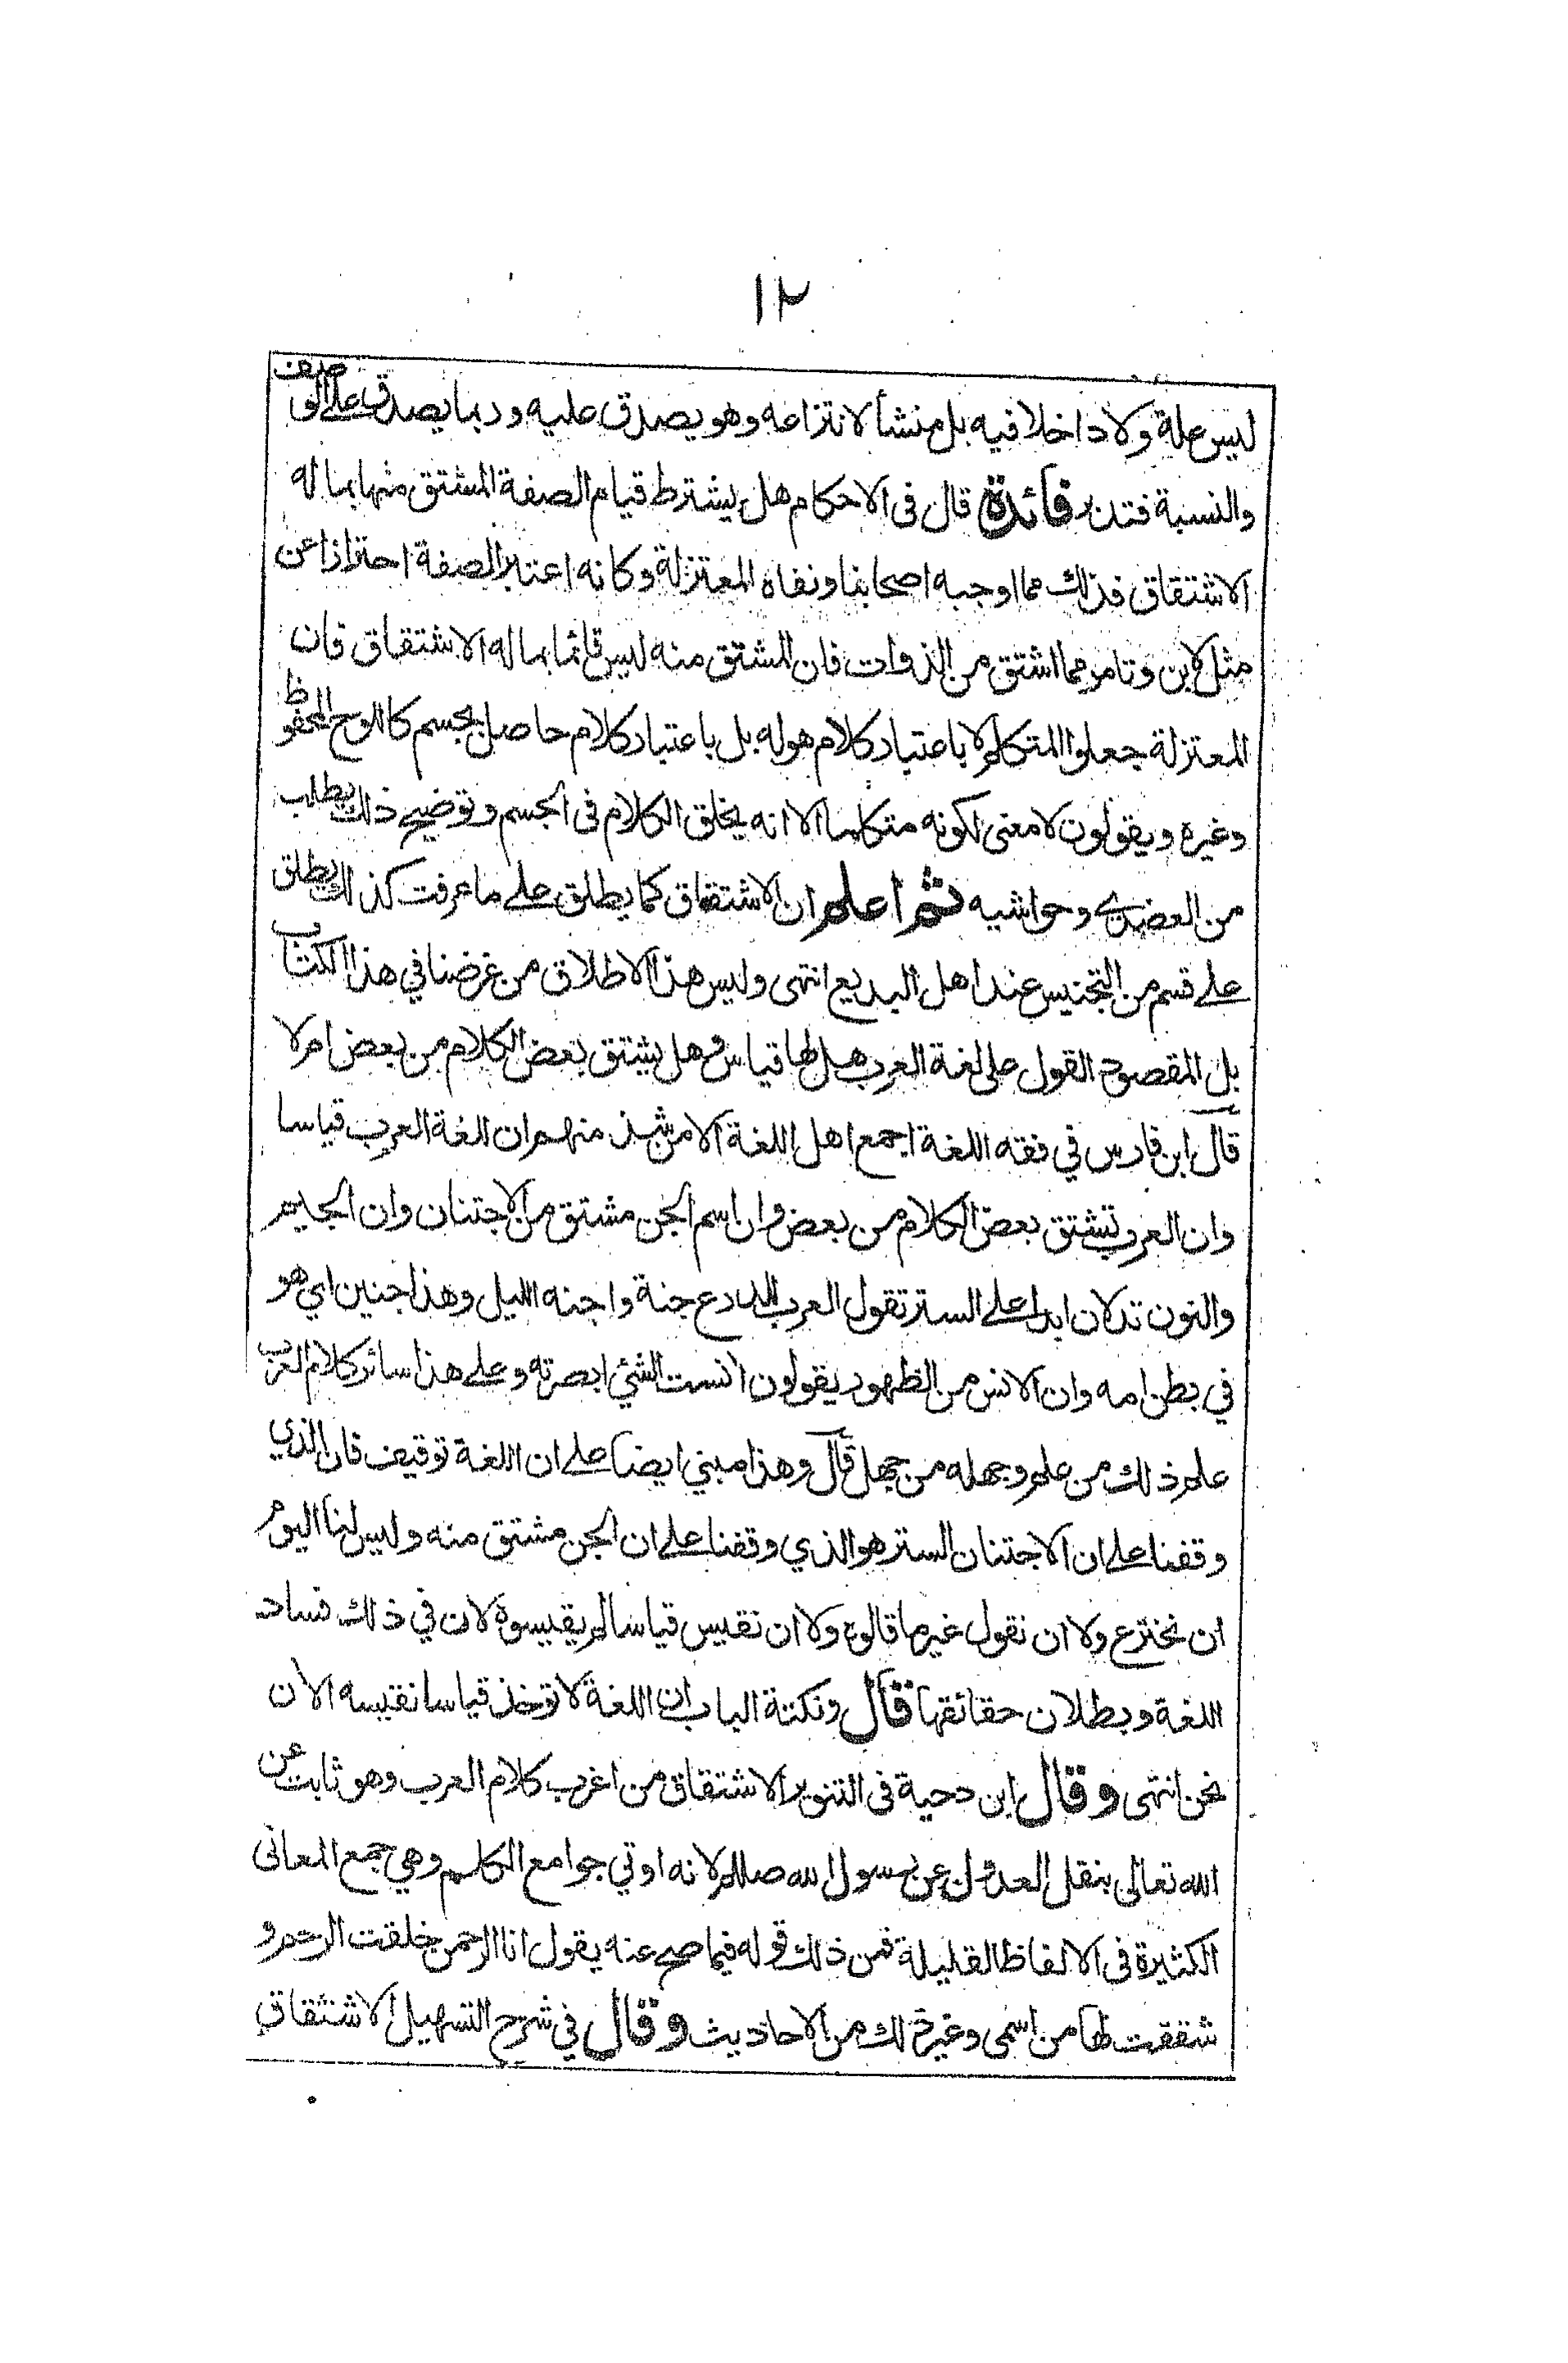 ١٢
ليس علة ولا داخلا فيه بل منشأ لانتزاعه وهو يصدق عليه وربما يصدق على الوصف
والنسبة فتدبر فائدة قال فى الاحكام هل يشترط قيام الصفة المشتق منها بما له
الاشتقاق فذلك مما اوجبه اصحابنا ونفاه المعتزلة وكانه اعتبر الصفة احترازا عن
مثل لابن وتامر مما اشتق من الذوات فان المشتق منه ليس قائما بما له الاشتقاق فان
المعتزلة جعلوا المتكلم لا باعتبار كلام هو له بل باعتبار كلام حاصل بجسم كاللوح المحفوظ
وغيره ويقولون لا معنى لكونه متكلما الا انه يخلق الكلام فى الجسم وتوضيح ذلك يطلب
من العضدي وحواشيه ثم اعلم ان الاشتقاق كما يطلق على ما عرفت كذلك يطلق
على قسم من التجنيس عند اهل البديع انتهى وليس هذا الاطلاق من غرضنا في هذا الكتاب
بل المقصود القول على لغة العرب هل لها قياس وهل يشتق بعض الكلام من بعض ام لا
قال ابن فارس في فقه اللغة اجمع اهل اللغة الا من شذ منهم ان للغة العرب قياسا
وان العرب تشتق بعض الكلام من بعض وان اسم الجن مشتق من الاجتنان وان الجيم
والنون تدلان ابدا على الستر تقول العرب للدرع جنة واجنه الليل وهذا جنين اي هو
في بطن امه وان الانس من الظهور يقولون انست الشئ ابصرته وعلى هذا سائر كلام العرب
علم ذلك من علم وجهله من جهل قال وهذا مبني ايضا على ان اللغة توقيف فان الذي
وقفنا على ان الاجتنان الستر هو الذي وقفنا على ان الجن مشتق منه وليس لنا اليوم
ان نخترع ولا ان نقول غير ما قالوه ولا ان نقيس قياسا لم يقيسوه لان في ذلك فساد
اللغة وبطلان حقائقها قال ونكتة الباب ان اللغة لا توخذ قياسا نقيسه الان
نحن انتهى وقال ابن دحية فى التنوير الاشتقاق من اغرب كلام العرب وهو ثابت عن
الله تعالى بنقل العدول عن رسول الله صللم لانه اوتي جوامع الكلم وهي جمع المعانى
الكثيرة فى الالفاظ القليلة فمن ذلك قوله فيما صح عنه يقول انا الرحمن خلقت الرحم و
شققت لها من اسمى وغير ذلك من الاحاديث وقال في شرح التسهيل الاشتقاق